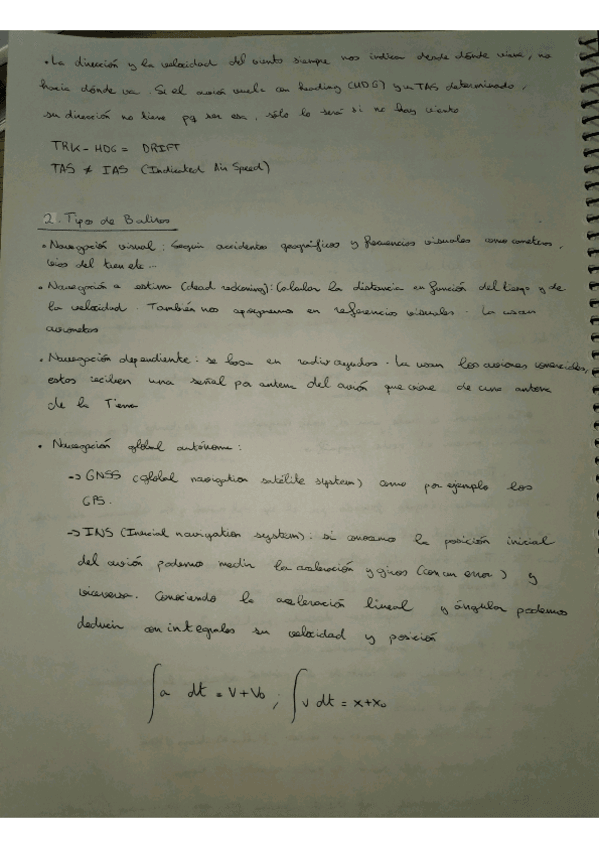 • La dirección y la velocidad del viento siempre nos indican desde dónde viene, no
hacia dónde va. Si el avión vuela con heading (HDG) y un TAS determinado,
su dirección no tiene pq ser esa, sólo lo será si no hay viento
TRK - HDG = DRIFT
TAS ≠ IAS (Indicated Air Speed)
2. Tipos de Balizas
• Navegación visual: Según accidentes geográficos y visuales como carreteras,
vías del tren etc...
• Navegación a estima (dead reckoning): Calcular la distancia en función del tiempo y de
la velocidad. También nos apoyamos en referencias visuales. La usan
avionetas
• Navegación dependiente: se basa en radioayudas. La usan los aviones comerciales,
estos reciben una señal por antena del avión que viene de una antena
de la Tierra
• Navegación global autónoma:
→ GNSS (global navigation satélite system) como por ejemplo los
GPS.
→ INS (Inercial navigation system). si conocemos la posición inicial
del avión podemos medir la aceleración y giros (con un error) y
viceversa. Conociendo la aceleración lineal y ángular podemos
deducir con integrales su velocidad y posición
∫a dt = V + V₀ ; ∫v dt = x + x₀